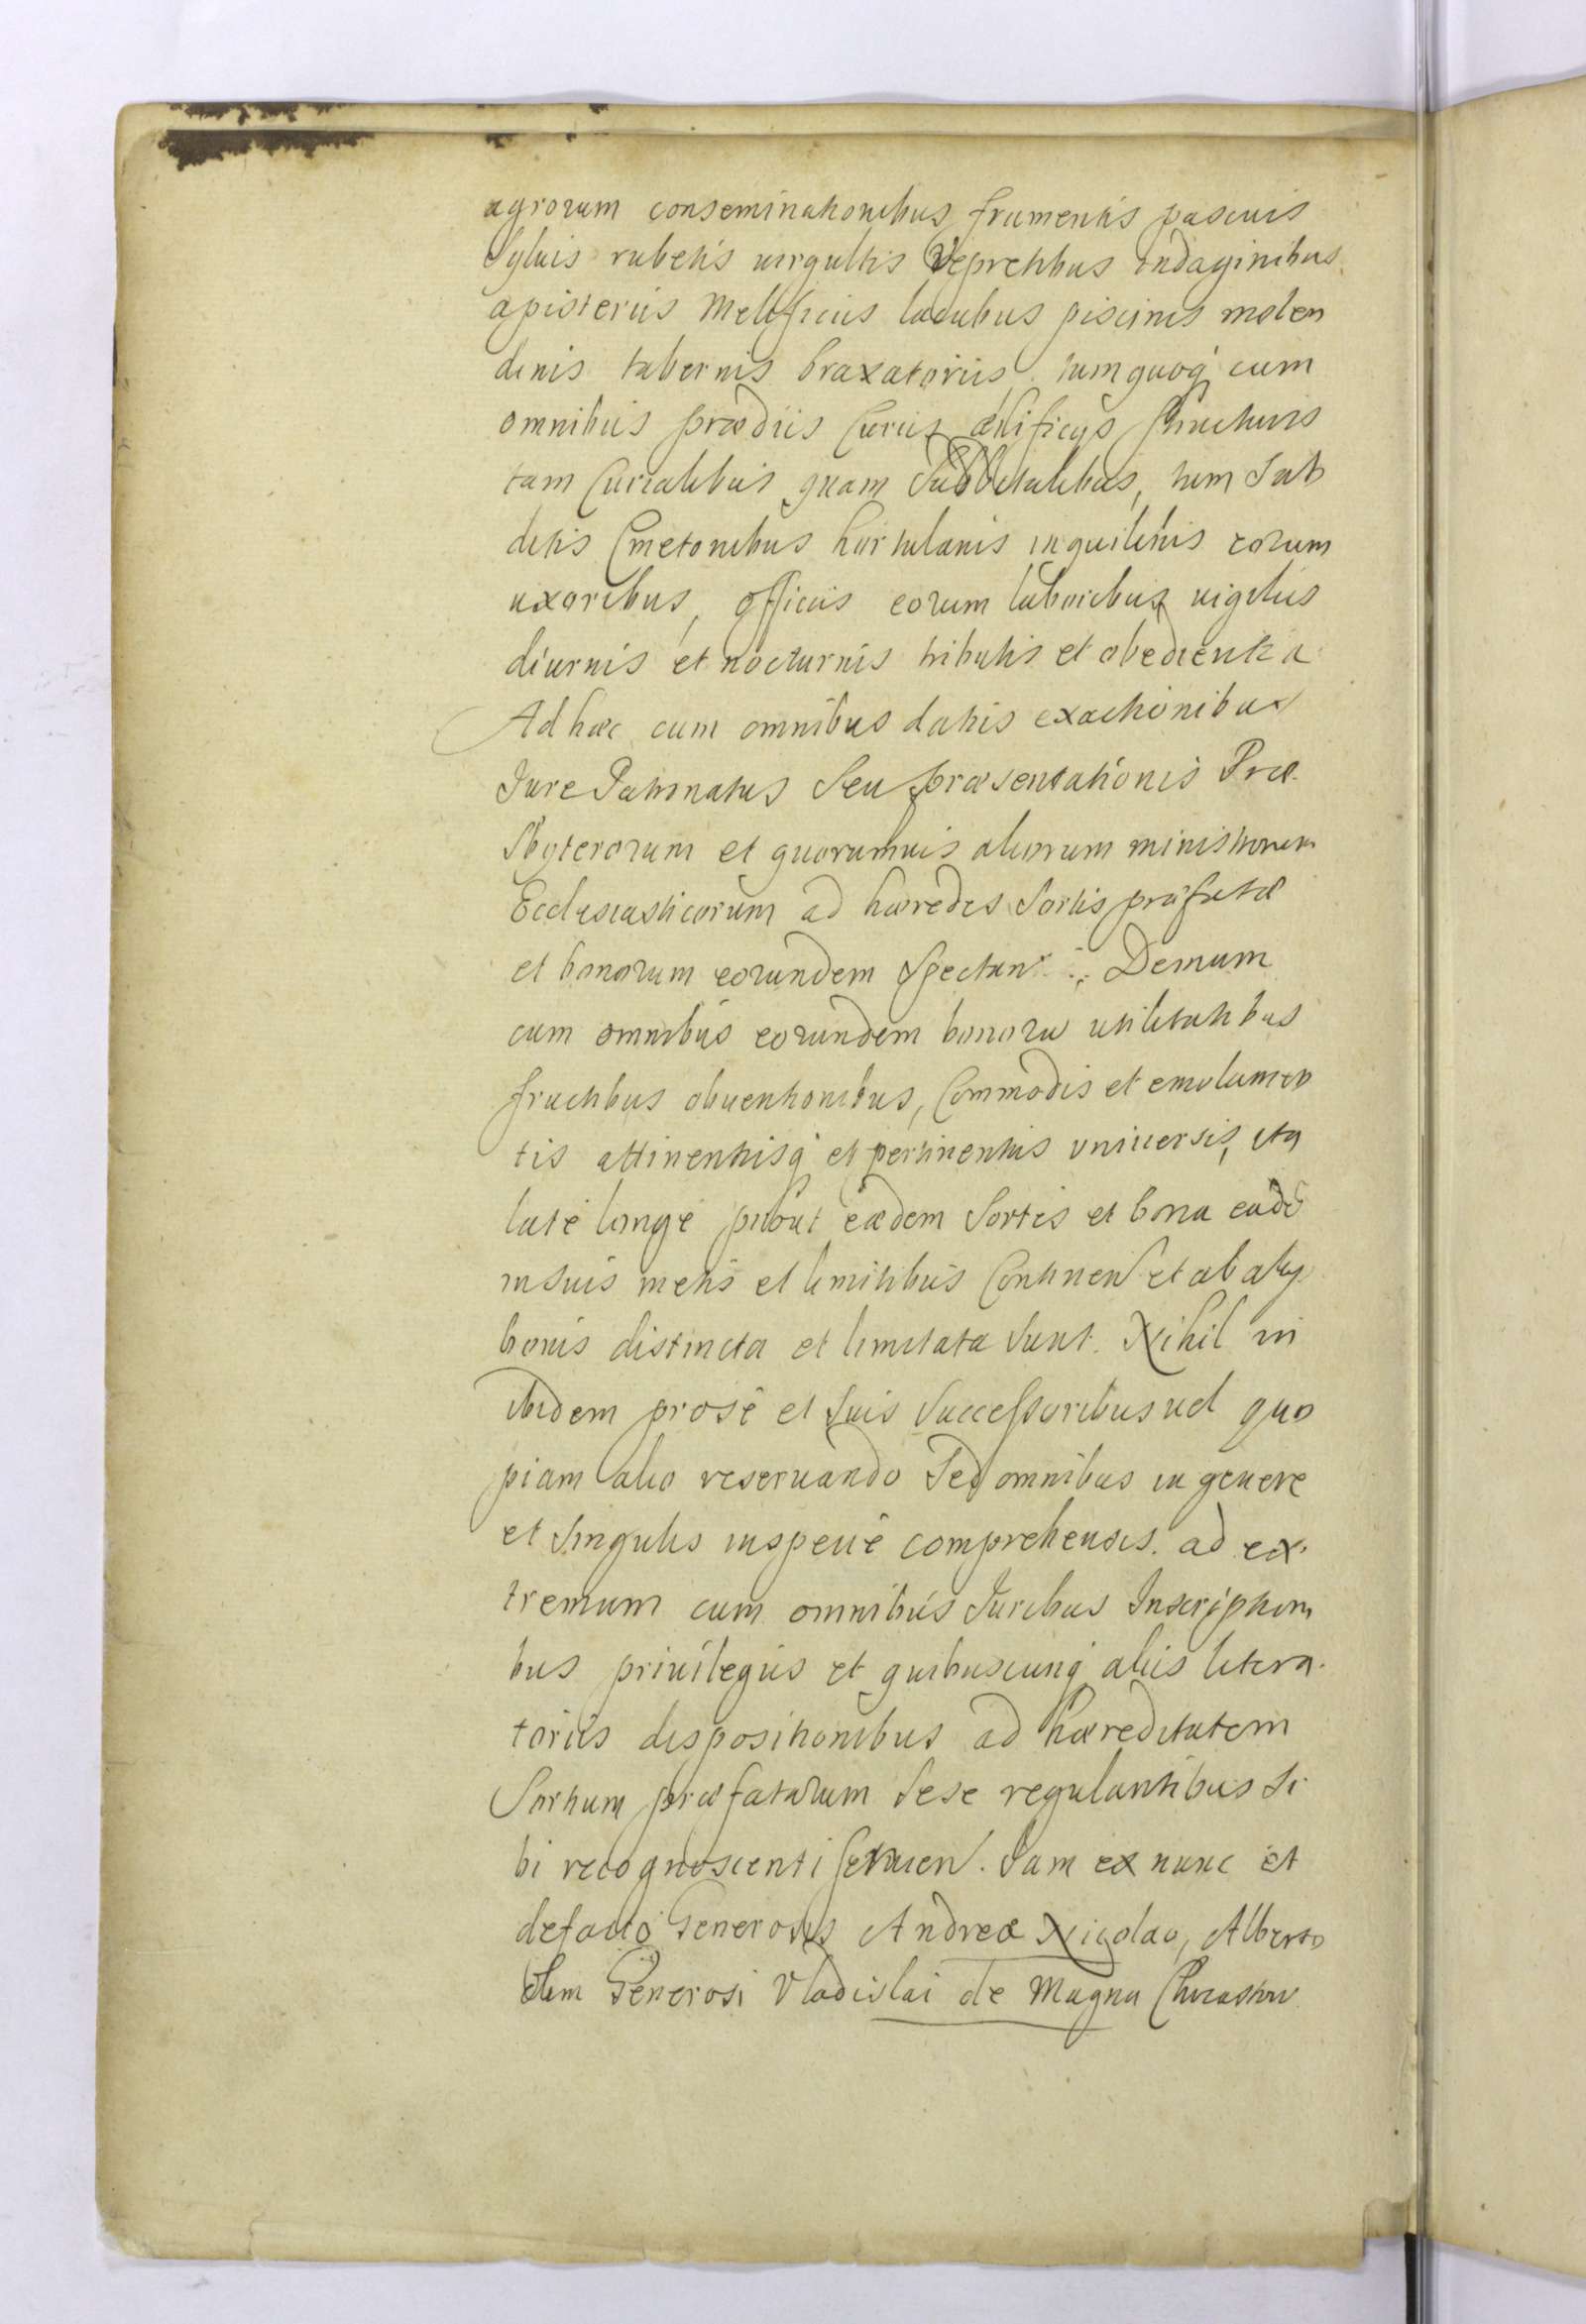 agrorum conseminationibus frumentis pascuis
Syluis rubetis uirgultis Vepretibus indaginibus
apisteriis Mellificiis lacubus piscinis molen
dinis tabernis braxatoriis, tum quoq cum
omnibus prædiis Curiis ædificys structuris
tam Curialibus quam Subditalibus, tum Sub
ditis Cmetonibus hortulanis inquilinis eorum
uxoribus, officiis eorum laboribus uigiliis
diurnis et nocturnis tributis et obedientia
Ad hæc cum omnibus datiis exactionibus
Jure Patronatus Seu præsentationis Præ
Sbyterorum et quorumuis aliorum ministrorum
Ecclesiasticorum ad hæredes Sortis præfatæ
et bonorum eorundem Spectan Demum
cum omnibus eorundem bonoru utilitatibus
fructibus obuentionibus, Commodis et emolumen
tis attinentiisq et pertinentiis vniuersis, ita
laté longé prout eædem Sortes et bona eadē
in suis metis et limitibus Continen et ab alys
bonis distincta et limitata Sunt. Nihil iñ
ibidem pro sé et Suis Successoribus uel quo
piam alio reseruando Sed omnibus in genere
et Singulis in speciè comprehensis. ad ex
tremum cum omnibus Juribus Inscriptioni
bus priuilegiis et quibuscunq aliis litera
toriis dispositionibus ad hæreditatem
Sortium præfatarum Sese regulantibus Si
bi recognoscenti seruien. Jam ex nunc et
de facto Generosis Andreæ Nicolao, Alberto
olim Generosi Vladislai de Magna Chrzastow